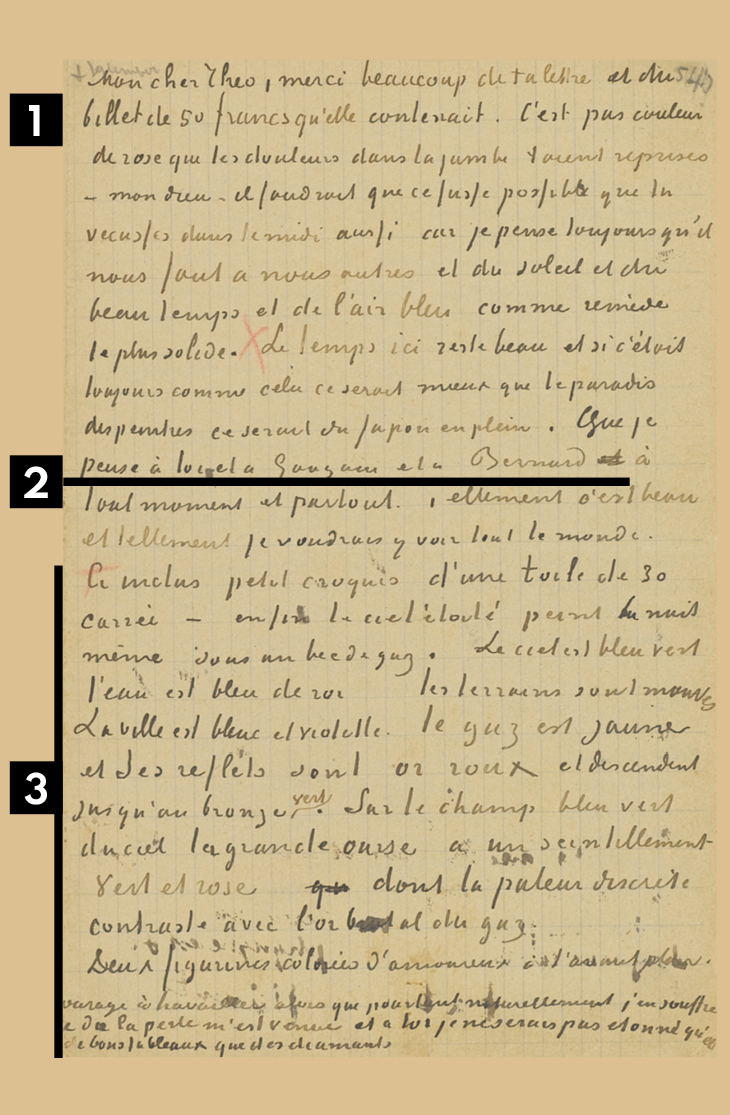 Mon cher Theo, merci beaucoup de ta lettre et du 543
1
billet de 50 francs qu'elle contenait. C'est pas couleur
de rose que les douleurs dans la jambe soient reprises
– mon dieu – il faudrait que ce fusse possible que tu
vecusses dans le midi aussi car je pense toujours qu'il
nous faut a nous autres et du soleil et du
beau temps et de l'air bleu comme remède
le plus solide. Le temps ici reste beau et si c'était
toujours comme cela ce serait mieux que le paradis
des peintres ce serait du Japon en plein. Que je
pense à toi et a Gauguin et a Bernard à
2
tout moment et partout. Tellement c'est beau
et tellement je voudrais y voir tout le monde.
Ci inclus petit croquis d'une toile de 30
carrée – enfin le ciel étoilé peint la nuit
même sous un bec de gaz. Le ciel est bleu vert
l'eau est bleu de roi les terrains sont mauves
La ville est bleue et violette. le gaz est jaune
et des reflets sont or roux et descendent
3
jusqu'au bronze vert. Sur le champ bleu vert
du ciel la grande ourse a un scintillement
vert et rose dont la paleur discrète
contraste avec l'or brutal du gaz.
Deux figurines coloriées d'amoureux à l'avant plan.
vorage à travailler alors que pourtant naturellement j'en souffre
e de la perte m'est venue et a toi je ne serais pas etonné qu'
de bons tableaux que des diamants